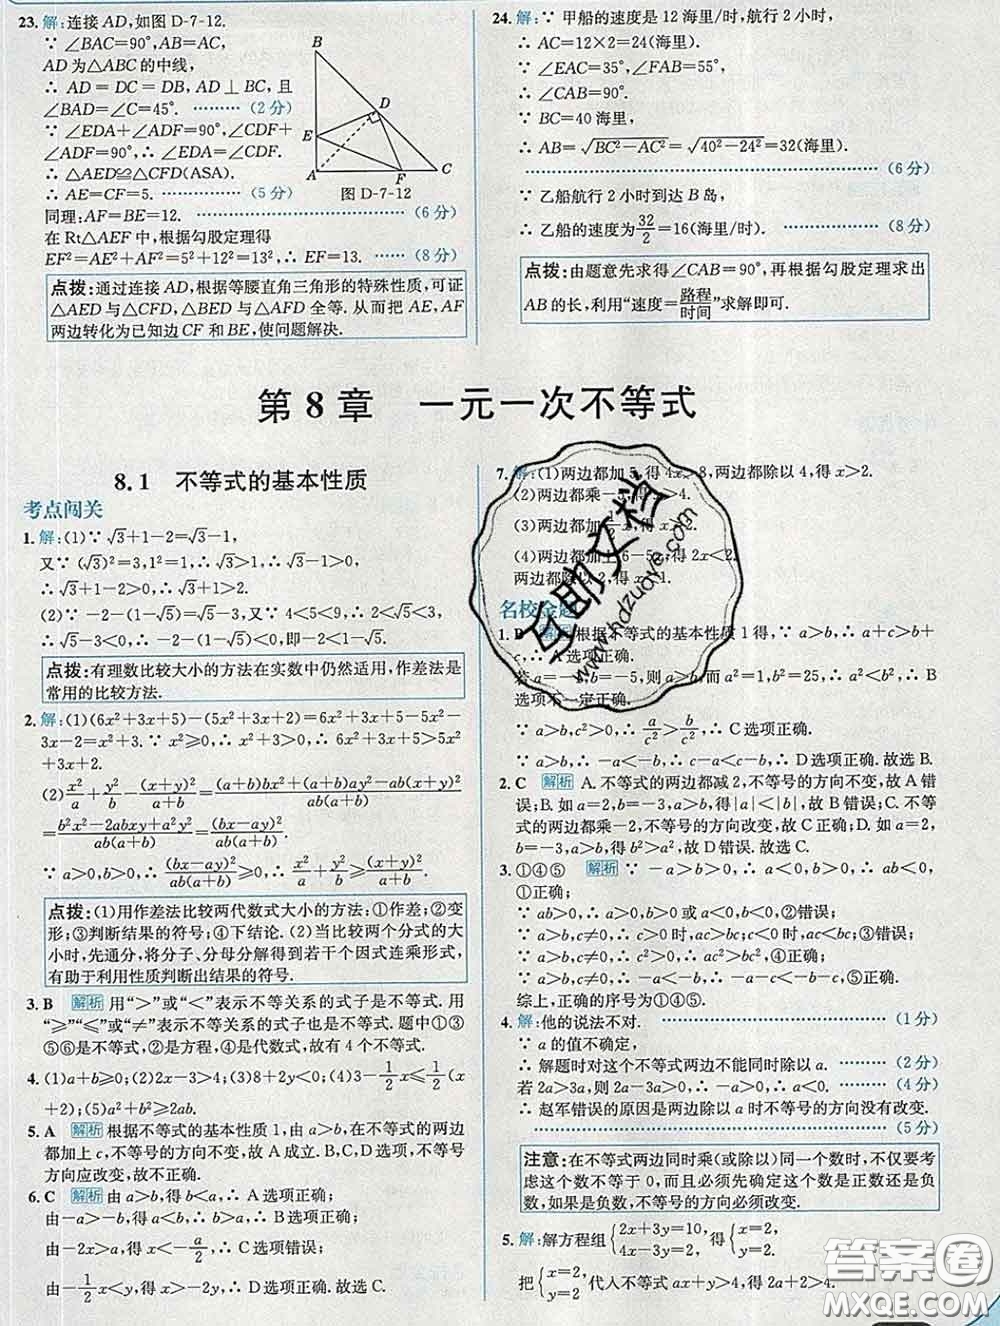 23. 解:连接 AD,如图 D-7-12.
∵ ∠BAC=90°,AB=AC,
AD 为△ABC 的中线,
∴ AD = DC = DB, AD ⊥ BC, 且
∠BAD=∠C=45°. ……… (2 分)
∵ ∠EDA+∠ADF=90°,∠CDF+
∠ADF=90°,∴ ∠EDA=∠CDF.
∴ △AED≌△CFD(ASA).
∴ AE=CF=5. ……… (5 分)
B
D
E
A
F
C
图 D-7-12
同理:AF=BE=12. ……… (6 分)
在 Rt△AEF 中,根据勾股定理得
EF²=AE²+AF²=5²+12²=13²,∴ EF=13. ……… (8 分)
点拨:通过连接 AD,根据等腰直角三角形的特殊性质,可证
△AED 与△CFD,△BED 与△AFD 全等. 从而把 AE,AF
两边转化为已知边 CF 和 BE,使问题解决.
24. 解:∵ 甲船的速度是 12 海里/时,航行 2 小时,
∴ AC=12×2=24(海里).
∵ ∠EAC=35°,∠FAB=55°,
∴ ∠CAB=90°.
∵ BC=40 海里,
∴ AB=√(BC²-AC²)=√(40²-24²)=32(海里).
……… (6 分)
∵ 乙船航行 2 小时到达 B 岛,
∴ 乙船的速度为32/2=16(海里/时). ……… (8 分)
点拨:由题意先求得∠CAB=90°,再根据勾股定理求出
AB 的长,利用“速度=路程/时间”求解即可.
第 8 章 一元一次不等式
8.1 不等式的基本性质
考点闯关
1. 解:(1)∵ √3+1-2=√3-1,
又∵ (√3)²=3,1²=1,∴ √3>1,∴ √3-1>0,
∴ √3+1-2>0,∴ √3+1>2.
(2)∵ -2-(1-√5)=√5-3,又∵ 4<5<9,∴ 2<√5<3,
∴ √5-3<0,∴ -2-(1-√5)<0,∴ -2<1-√5.
点拨:有理数比较大小的方法在实数中仍然适用,作差法是
常用的比较方法.
2. 解:(1)(6x²+3x+5)-(5x²+3x+2)=6x²+3x+5-5x²
-3x-2=x²+3. ∵ x²≥0,∴ x²+3>0,∴ 6x²+3x+5>5x²
+3x+2.
(2)x²/a+y²/b-(x+y)²/(a+b)=((a+b)bx²+(a+b)ay²-ab(x+y)²)/(ab(a+b))
=(b²x²-2abxy+a²y²)/(ab(a+b))=(bx-ay)²/(ab(a+b)).
∵ a>0,b>0,∴ (bx-ay)²/(ab(a+b))≥0,∴ x²/a+y²/b≥(x+y)²/(a+b).
点拨:(1)用作差法比较两代数式大小的方法:①作差;②变
形;③判断结果的符号;④下结论. (2)当比较两个分式的大
小时,先通分,将分子、分母分解得到若干个因式连乘形式,
有助于利用性质判断出结果的符号.
3. B 解析 用“>”或“<”表示不等关系的式子是不等式. 用
“≥”“≤”或“≠”表示不等关系的式子也是不等式. 题中①③
⑤⑥是不等式,②是方程,④是代数式,故有 4 个不等式.
4. (1)a+b≥0;(2)2x-3>4;(3)8+2y<0;(4)3-1/2x≤1/2(x
+2);(5)a²+b²≥2ab.
5. A 解析 根据不等式的基本性质 1,由 a>b,在不等式的两边
都加上 c,不等号的方向不变,故 A 成立. B、C、D 项,不等号
方向应改变,故不正确.
6. C 解析 由 a>b,得 b<a,∴ A 选项正确;
由-a>-b,得 a<b,∴ B 选项正确;
由-2x>a,得 x<-a/2,∴ C 选项错误;
由-1/2x<y,得 x>-2y,∴ D 选项正确. 故选 C.
7. 解:(1)两边都加 5,得 4x>8,两边都除以 4,得 x>2.
(2)两边都乘-5,得 x>4.
(3)两边都加1/2x,得 x<5.
(4)两边都加上 6-5x,得 2x<2.
两边都除以 2,得 x<1.
名校金题
1. B 解析 根据不等式的基本性质 1 得,∵ a>b,∴ a+c>b+
c,∴ A 选项正确.
若 a=-1,b=-5,则 a>b,而 a²=1,b²=25,∴ a²<b²,∴ B
选项不一定正确.
∵ a>b,c²>0,∴ a/c²>b/c²,∴ C 选项正确.
∵ a>b,∴ -a<-b,∴ c-a<c-b,∴ D 选项正确. 故选 B.
2. C 解析 A. 不等式的两边都减 2,不等号的方向不变,故 A 错
误;B. 如 a=2,b=-3,a>b,得|a|<|b|,故 B 错误;C. 不等
式的两边都乘-2,不等号的方向改变,故 C 正确;D. 如 a=2,
b=-3,a>b,得 a²<b²,故 D 错误. 故选 C.
3. ①④⑤ 解析 ∵ -a>b>0,∴ a<0,b>0,∴ ab<0,
①正确;
∵ ab>0,∴ a>0,b>0 或 a<0,b<0,②错误;
∵ a>b,c≠0,∴ c>0 时,ac>bc;c<0 时,ac<bc,③错误;
∵ a>b,c≠0,∴ c²>0,∴ ac²>bc²,④正确;
∵ a>b,c≠0,∴ -a<-b,∴ -a-c<-b-c,⑤正确.
综上,正确的序号为①④⑤.
4. 解:他的说法不对. ……… (1 分)
∵ a 的值不确定,
∴ 解题时对这个不等式两边不能同时除以 a. ……… (2 分)
若 2a>3a,则 2a-3a>0,∴ -a>0,∴ a<0. ……… (4 分)
∴ 赵军错误的原因是两边除以 a 时不等号的方向没有改变.
……… (5 分)
注意:在不等式两边同时乘(或除以)同一个数时,不仅要考
虑这个数不等于 0,而且必须先确定这个数是正数还是负
数,如果是负数,不等号的方向必须改变.
5. 解:解方程组{2x+3y=10, 4x-3y=2, 得{x=2, y=2.
把{x=2, y=2 代入不等式 ax+y>4,得 2a+2>4.
互助文档
www.hdzuoye.com
答案圈
MXQE.COM